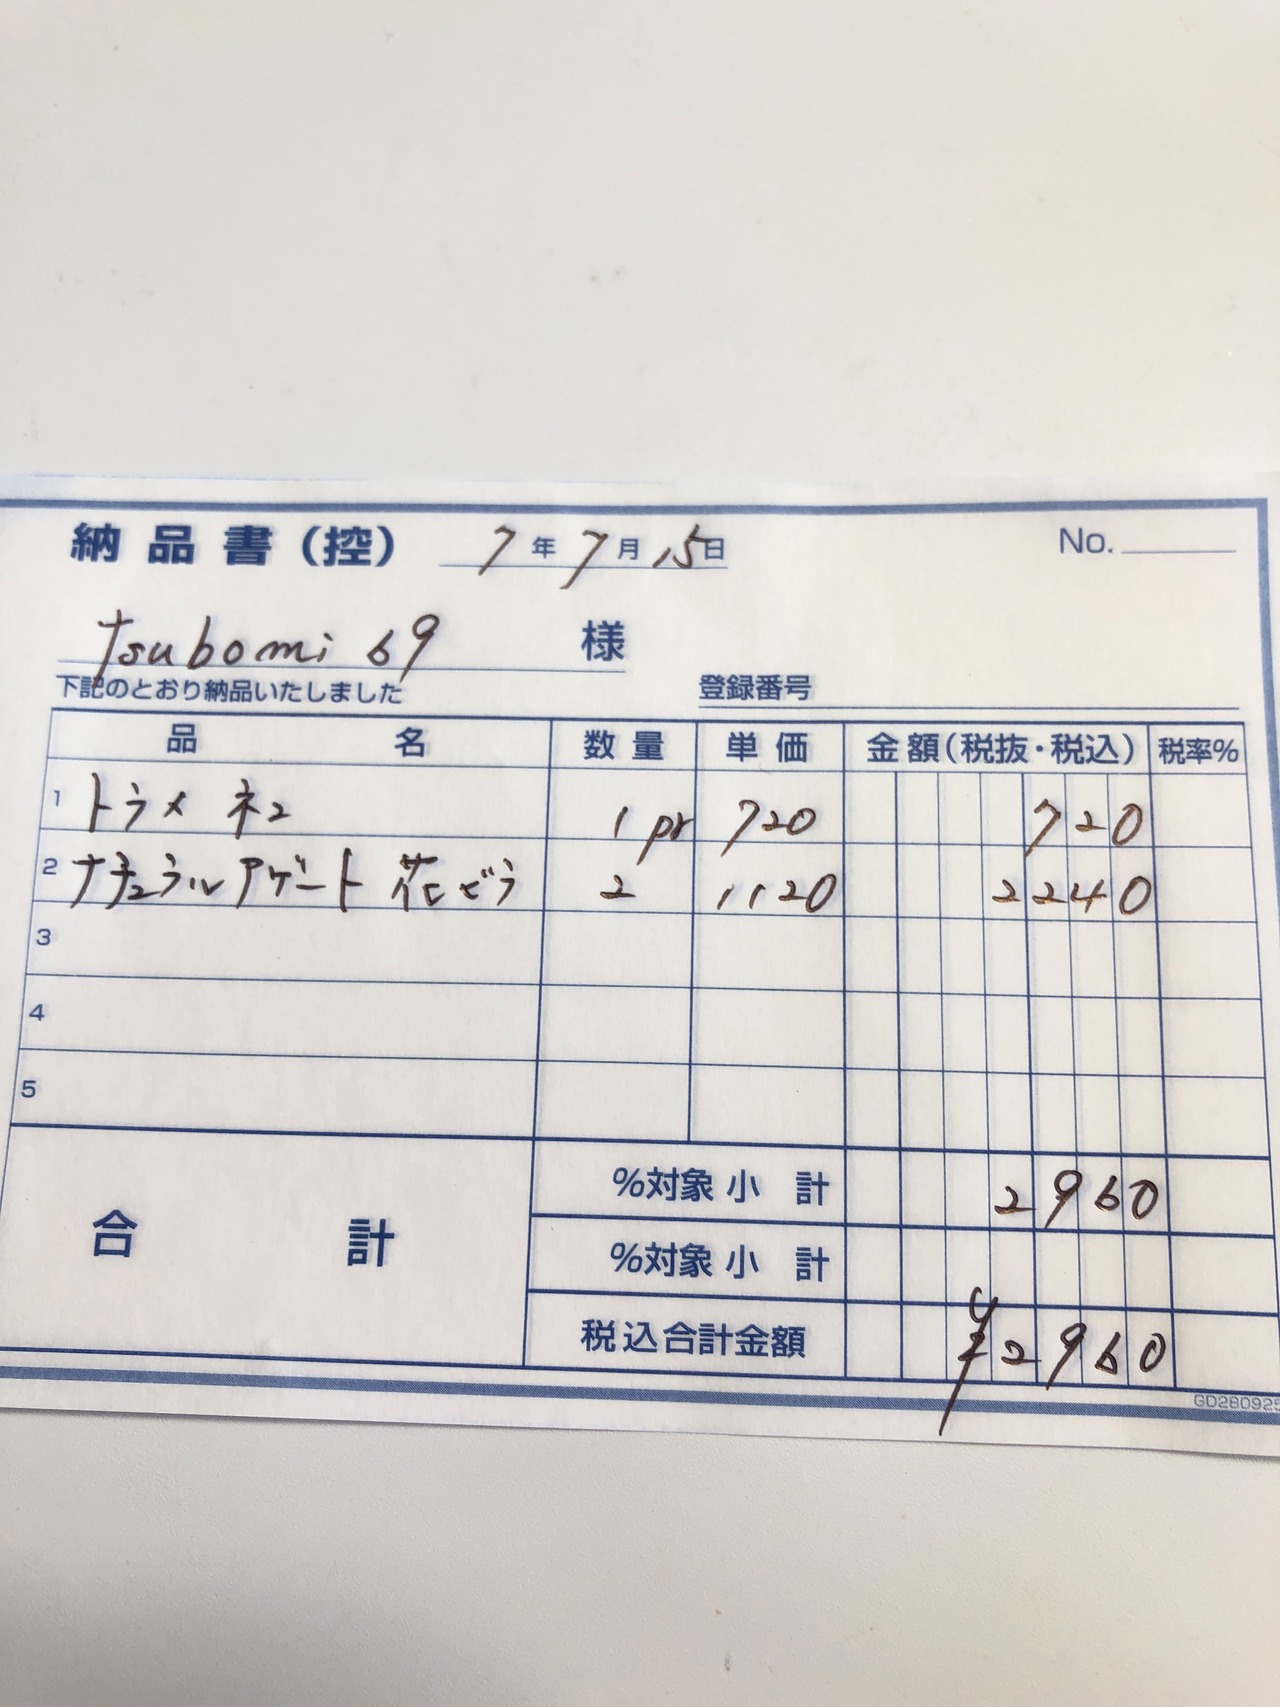 納品書(控) 7年7月15日 No.
tsubomi 69 様
下記のとおり納品いたしました 登録番号
品名 数量 単価 金額(税抜・税込) 税率%
1 トラメ ネコ 1pr 720 720
2 ナチュラルアゲート 花どう 2 1120 2240
3
4
5
合計
%対象小計 2960
%対象小計
税込合計金額 ¥2960
GD280925